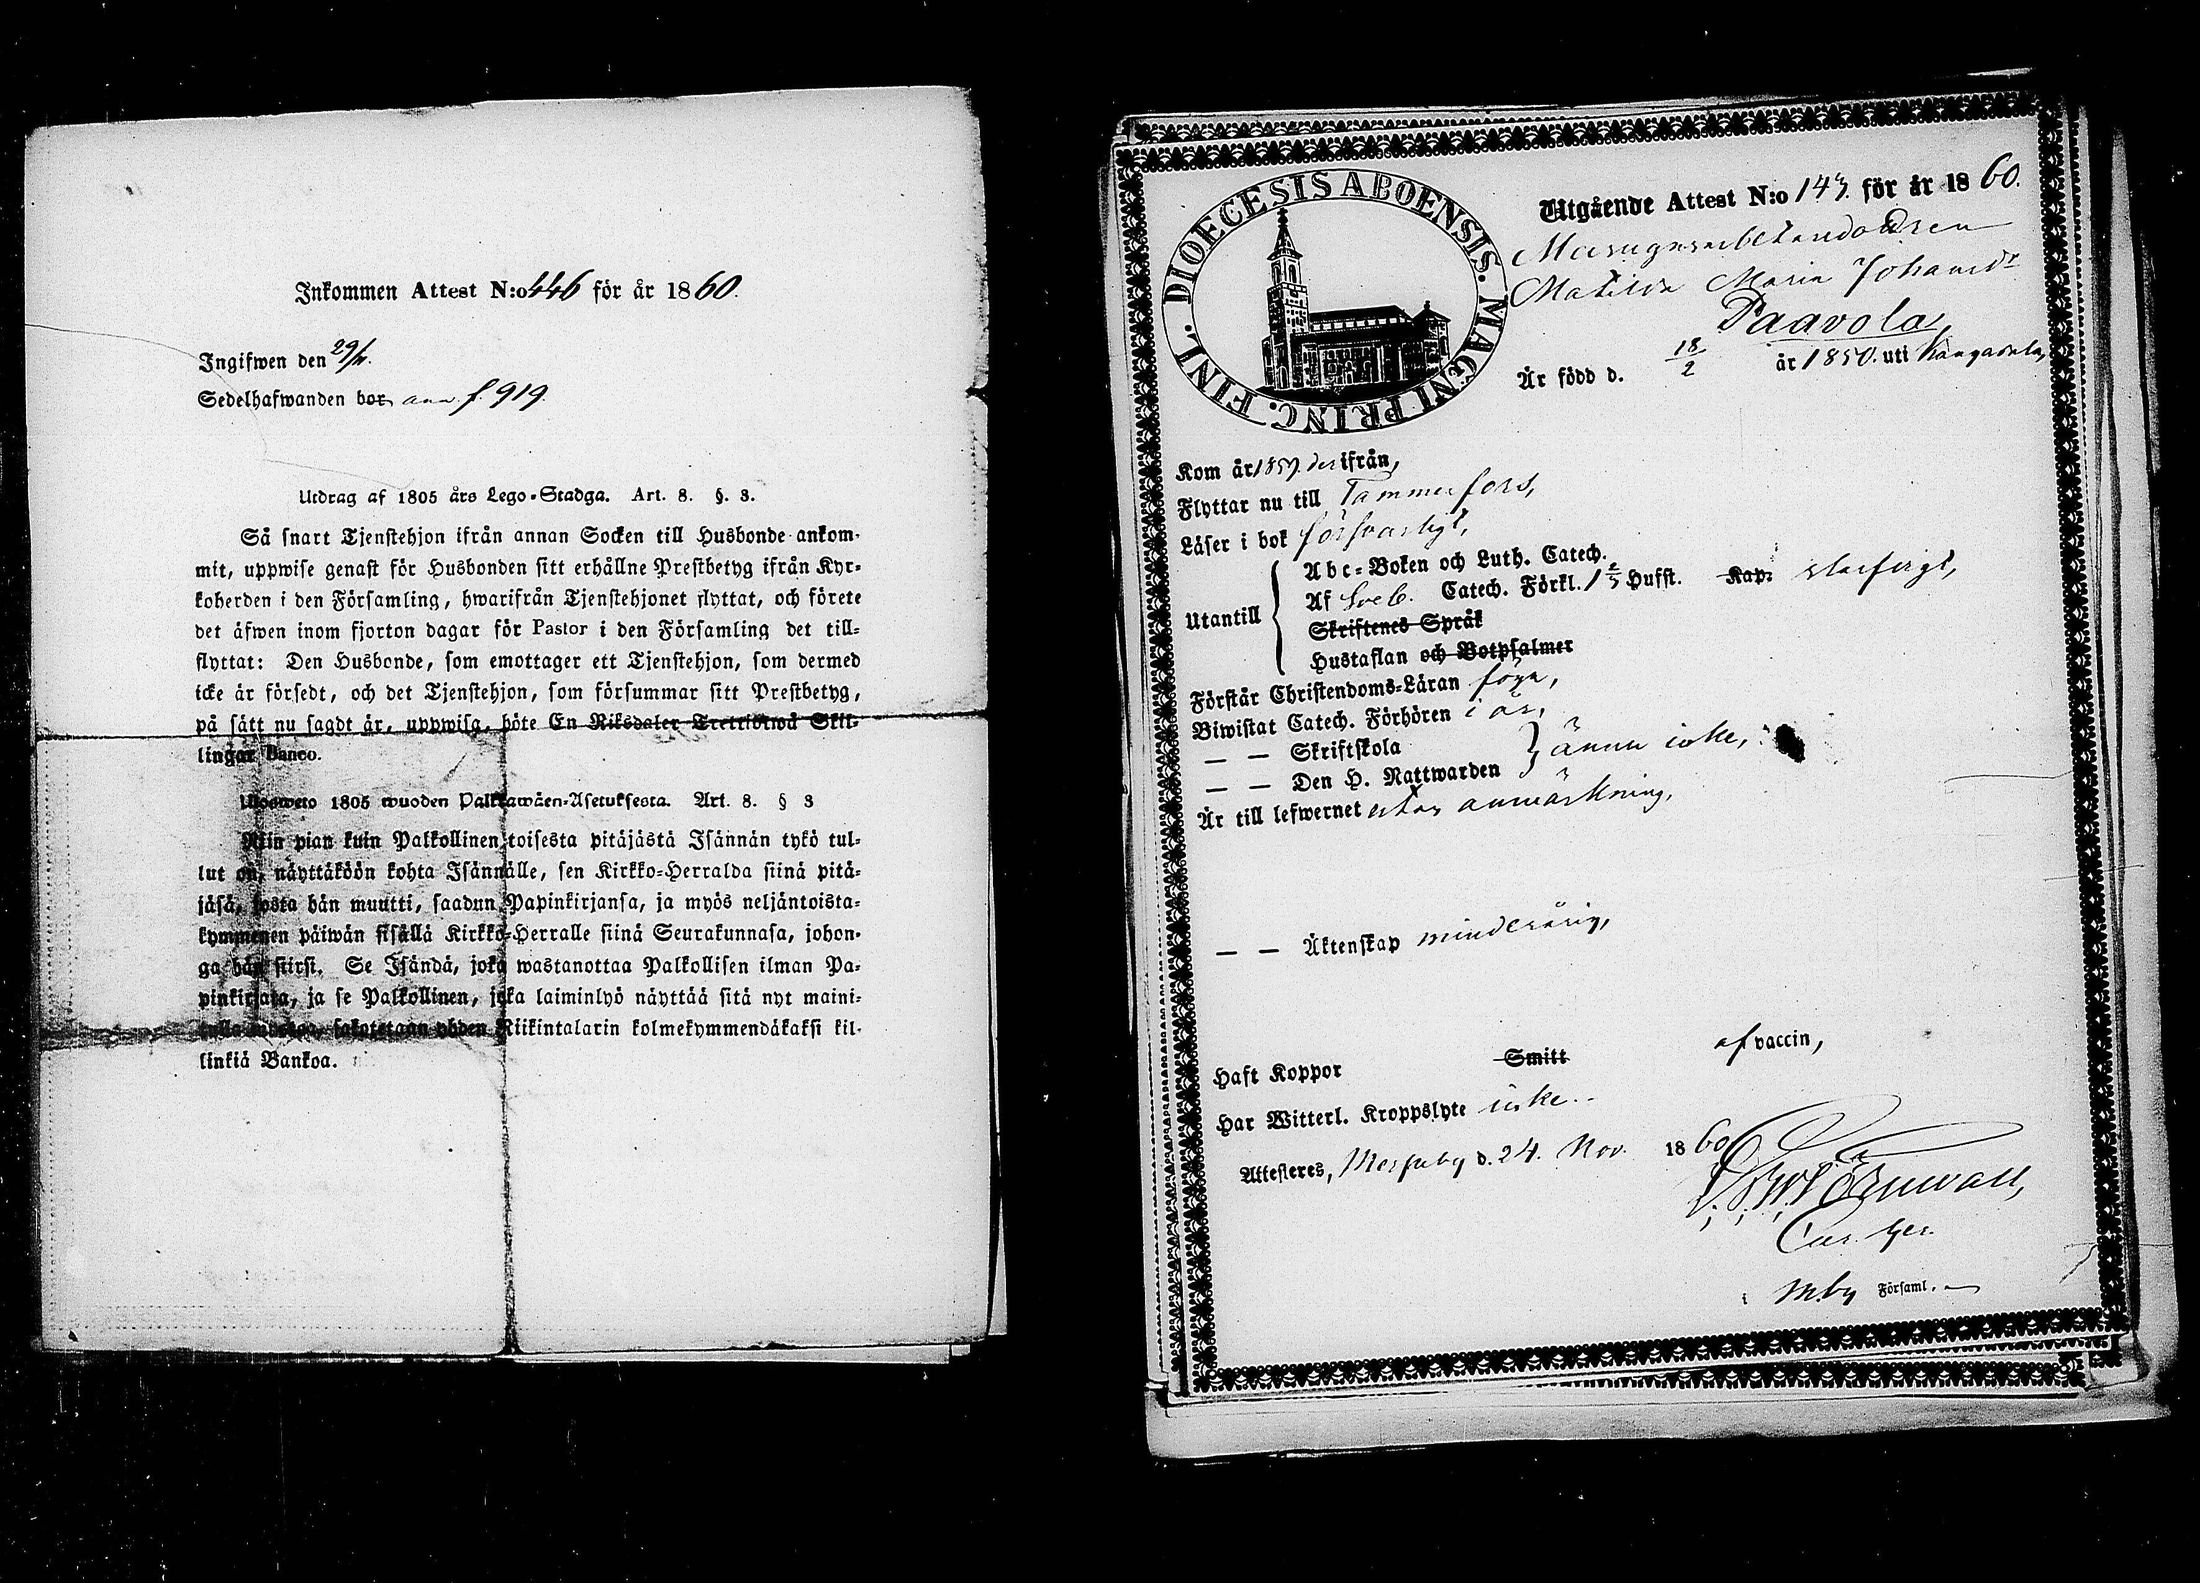 Inkommen Attest N:o 446 för år 1860.
Ingifwen den 29/11.
Sedelhafwanden bor ann. f. 919.
Utdrag af 1805 års Lego-Stadga. Art. 8. §. 3.
Så snart Tjenstehjon ifrån annan Socken till Husbonde ankom-
mit, uppwise genast för Husbonden sitt erhållne Prestbetyg ifrån Kyr-
koherden i den Församling, hwarifrån Tjenstehjonet flyttat, och förete
det äfwen inom fjorton dagar för Pastor i den Församling det till-
flyttat: Den Husbonde, som emottager ett Tjenstehjon, som dermed
icke är försedt, och det Tjenstehjon, som försummar sitt Prestbetyg,
på sätt nu sagdt är, uppwisa, böte En Riksdaler Trettiotwå Skil-
lingar Banco.
Ulosweto 1805 wuoden Palkkawäen-Asetuksesta. Art. 8. § 3
Niin pian kuin Palkollinen toisesta pitäjästä Isännän tykö tul-
lut on, näyttäköön kohta Isännälle, sen Kirkko-Herralda siinä pitä-
jäsä, josta hän muutti, saadun Papinkirjansa, ja myös neljäntoista-
kymmenen päiwän sisällä Kirkko-Herralle siinä Seurakunnasa, johon-
ga hän siirsi. Se Isändä, joka wastanottaa Palkollisen ilman Pa-
pinkirjata, ja se Palkollinen, joka laiminlyö näyttää sitä nyt maini-
tulla tawalla, sakotetaan yhden Riikintalarin kolmekymmendäkaksi kil-
linkiä Bankoa.
DIOECESIS ABOENSIS. MAGNI PRINC. FINL.
Utgående Attest N:o 143. för år 1860.
Masugnsarbetaredottren
Matilda Maria Johansdr
Paavola,
Är född d. 18/2 år 1850. uti Kangasala,
Kom år 1857. der ifrån,
Flyttar nu till Tammerfors,
Läser i bok försvarligt,
Utantill
Abc-Boken och Luth. Catech.
Af Sveb. Catech. Förkl. 1 2/5 Hufst. Kap. slarfvigt,
Skriftenes Språk
Hustaflan och Botpsalmer
Förstår Christendoms-Läran föga,
Biwistat Catech. Förhören i år,
— — Skriftskola
— — Den H. Nattwarden } ännu icke,
Är till lefwernet utan anmärkning,
— — Äktenskap minderårig,
Haft Koppor Smitt af vaccin,
Har Witterl. Kroppslyte icke.
Attesteres, Messuby d. 24. Nov. 1860
Törnwall,
i Mby Församl.